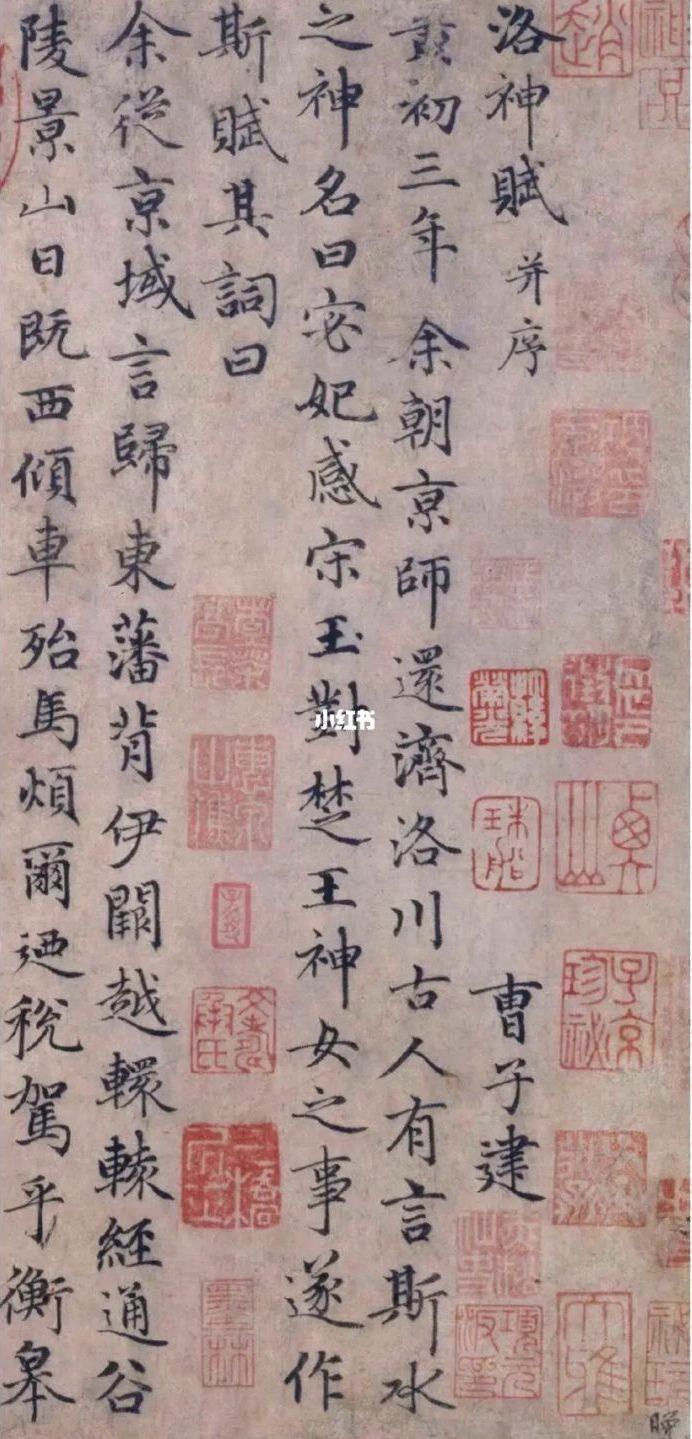 洛神賦 并序 曹子建
黃初三年余朝京師還濟洛川古人有言斯水
之神名曰宓妃感宋玉對楚王神女之事遂作
斯賦其詞曰
余從京域言歸東藩背伊闕越轘轅經通谷
陵景山日既西傾車殆馬煩爾迺稅駕乎衡皋
子京珍祕
大雅
小红书